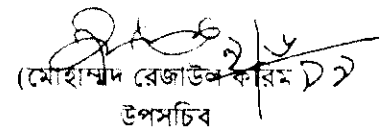 (মোহাম্মদ রেজাউল করিম)
উপসচিব